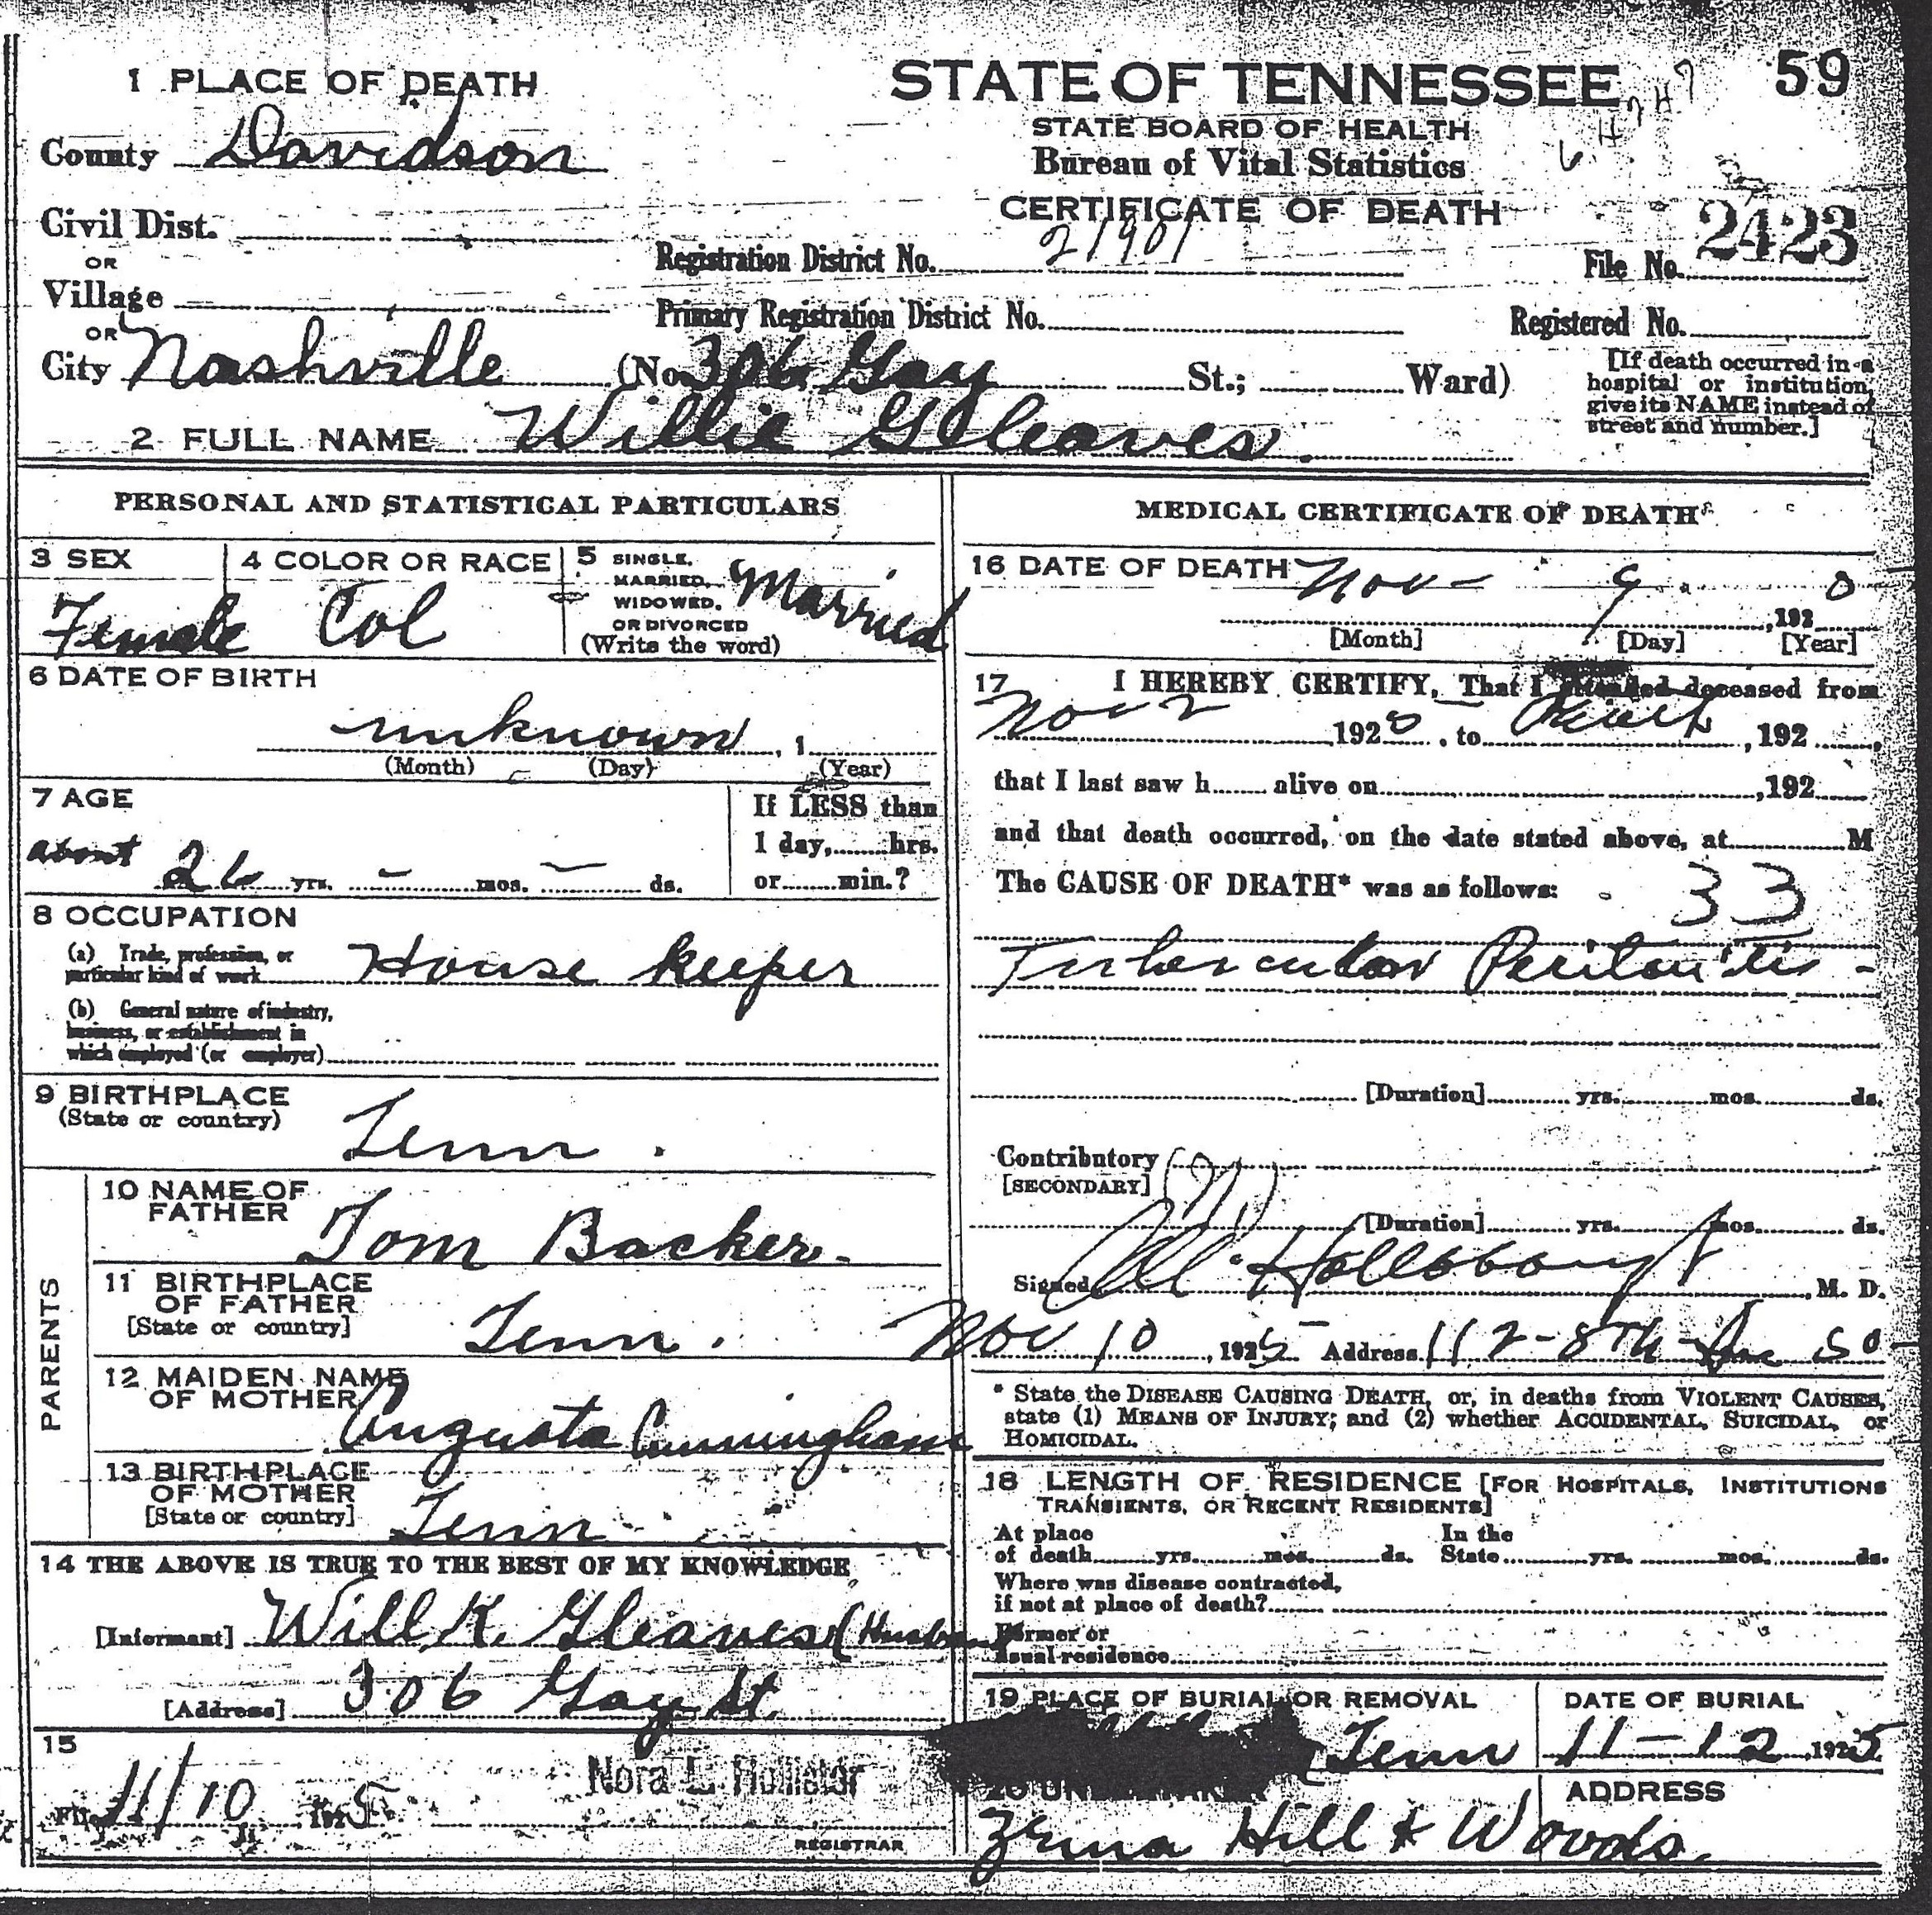 59
1 PLACE OF DEATH
STATE OF TENNESSEE
STATE BOARD OF HEALTH
Bureau of Vital Statistics
CERTIFICATE OF DEATH
County Davidson
Civil Dist.
OR
Village
OR
City Nashville (No. 306 Gay St.; Ward)
Registration District No. 21901
File No. 2423
Primary Registration District No.
Registered No.
[If death occurred in a
hospital or institution,
give its NAME instead of
street and number.]
2 FULL NAME Willie Gleaves
PERSONAL AND STATISTICAL PARTICULARS
3 SEX
Female
4 COLOR OR RACE
Col
5 SINGLE,
MARRIED,
WIDOWED,
OR DIVORCED
(Write the word)
Married
6 DATE OF BIRTH
unknown, 1
(Month) (Day) (Year)
7 AGE
about 26 yrs. – mos. – ds.
If LESS than
1 day, hrs.
or min.?
8 OCCUPATION
(a) Trade, profession, or
particular kind of work House keeper
(b) General nature of industry,
business, or establishment in
which employed (or employer)
9 BIRTHPLACE
(State or country)
Tenn.
PARENTS
10 NAME OF
FATHER
Tom Backer
11 BIRTHPLACE
OF FATHER
[State or country]
Tenn.
12 MAIDEN NAME
OF MOTHER
Augusta Cunningham
13 BIRTHPLACE
OF MOTHER
[State or country]
Tenn
14 THE ABOVE IS TRUE TO THE BEST OF MY KNOWLEDGE
[Informant] Will K. Gleaves (Husband
[Address] 306 Gay St.
15
11/10 5
Nora L. Hollister
REGISTRAR
MEDICAL CERTIFICATE OF DEATH
16 DATE OF DEATH Nov - 9
, 192
[Month] [Day] [Year]
17 I HEREBY CERTIFY, That I attended deceased from
Nov 2 192 , to , 192
that I last saw h alive on , 192
and that death occurred, on the date stated above, at M
The CAUSE OF DEATH* was as follows:
33
Tubercular Peritonitis -
[Duration] yrs. mos. ds.
Contributory
[SECONDARY]
[Duration] yrs. mos. ds.
Signed , M. D.
Nov 10, 1925 Address 112-8th Ave So
* State the DISEASE CAUSING DEATH, or, in deaths from VIOLENT CAUSES,
state (1) MEANS OF INJURY; and (2) whether ACCIDENTAL, SUICIDAL, or
HOMICIDAL.
18 LENGTH OF RESIDENCE [FOR HOSPITALS, INSTITUTIONS
TRANSIENTS, OR RECENT RESIDENTS]
At place
of death yrs. mos. ds.
In the
State yrs. mos. ds.
Where was disease contracted,
if not at place of death?
Former or
usual residence
19 PLACE OF BURIAL OR REMOVAL
Tenn
DATE OF BURIAL
11-12, 1925
ADDRESS
Zema Hill & Woods.